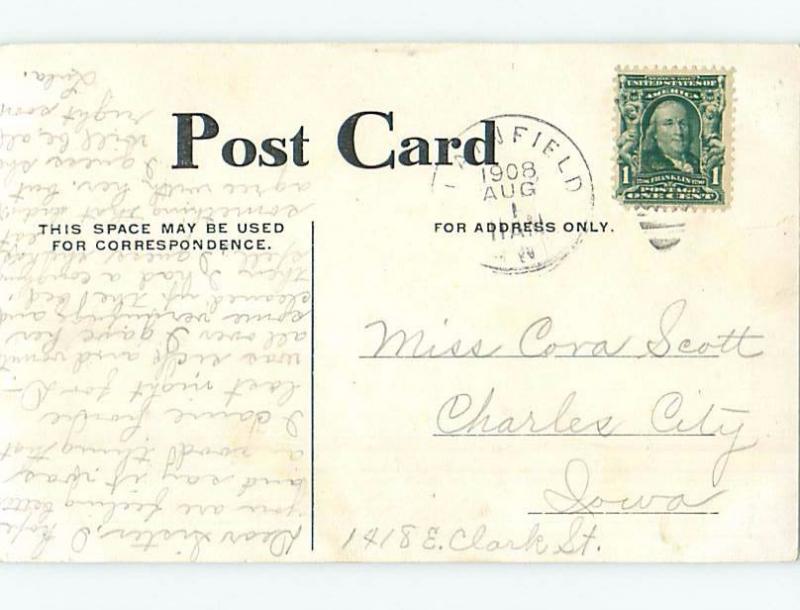 Post Card
THIS SPACE MAY BE USED
FOR CORRESPONDENCE.
FOR ADDRESS ONLY.
NFIELD
1908
AUG
1
11 AM
SERIES 1902
UNITED STATES OF
AMERICA
FRANKLIN
POSTAGE
1 1
ONE CENT
Miss Cora Scott
Charles City
Iowa
1418 E. Clark St.
Dear Sister, I hope
you are feeling better
and say it was
a good thing that
I came home
last night for D-
was sick and vomited
all over I gave her
some and
cleaned up the bed,
then I had a
Well, I guess she
eat
something that didn't
agree with her, but
I guess she
will be all
right soon
Lula.